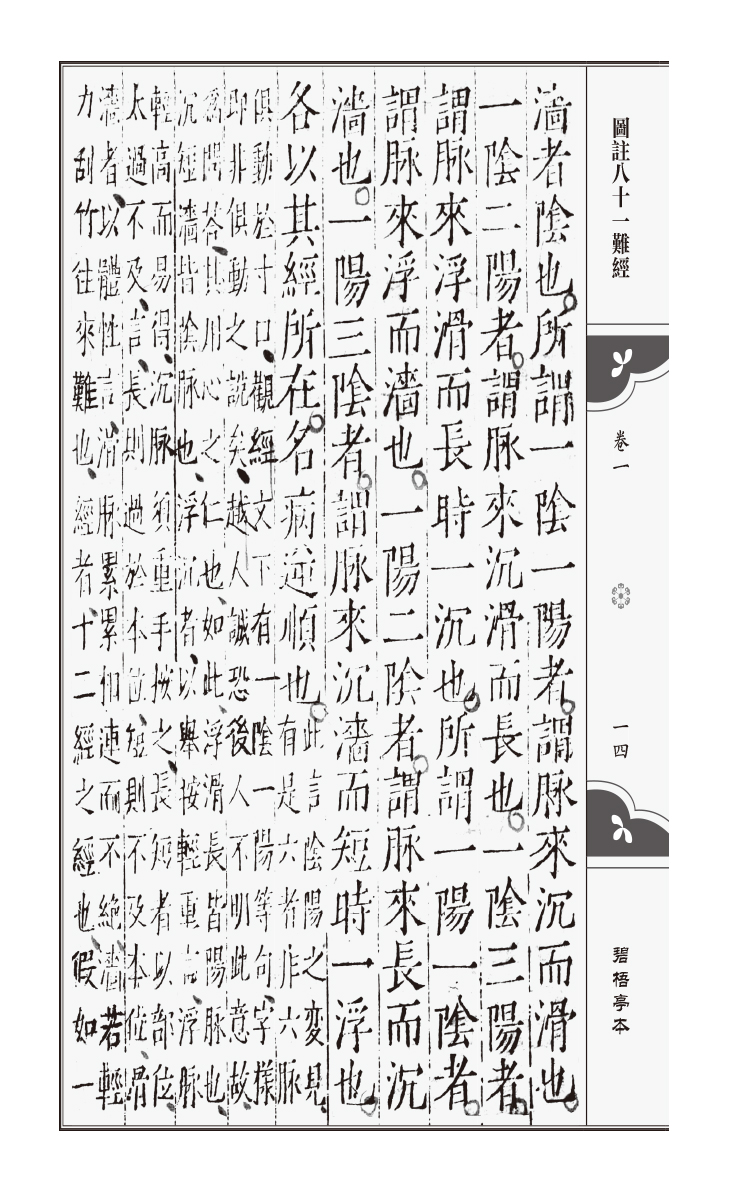 圖註八十一難經
卷一
一四
碧梧亭本
濇者陰也所謂一陰一陽者謂脉來沉而滑也
一陰二陽者謂脉來沉滑而長也一陰三陽者
謂脉來浮滑而長時一沉也所謂一陽一陰者
謂脉來浮而濇也一陽二陰者謂脉來長而沉
濇也一陽三陰者謂脉來沉濇而短時一浮也
各以其經所在名病逆順也
此言陰陽之變見
有是六者非六脉
俱動於寸口觀經文下有一陰一陽等句字樣
即非俱動之說矣越人誠恐後人不明此意故
為問荅其用心之仁也如此浮滑長皆陽脉也
沉短濇皆陰脉也浮沉者以舉按輕重言浮脉
輕高而易得沉脉須重手按之長短者以部位
太過不及言長則過於本位短則不及本位滑
濇者以體性言滑脉累累扣連而不絕濇若輕
力刮竹往來難也經者十二經之經也假如一